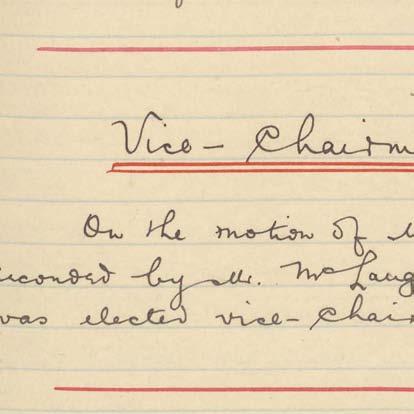 Vice - Chairm
On the motion of M
seconded by Mr. McLaug
was elected vice-chair